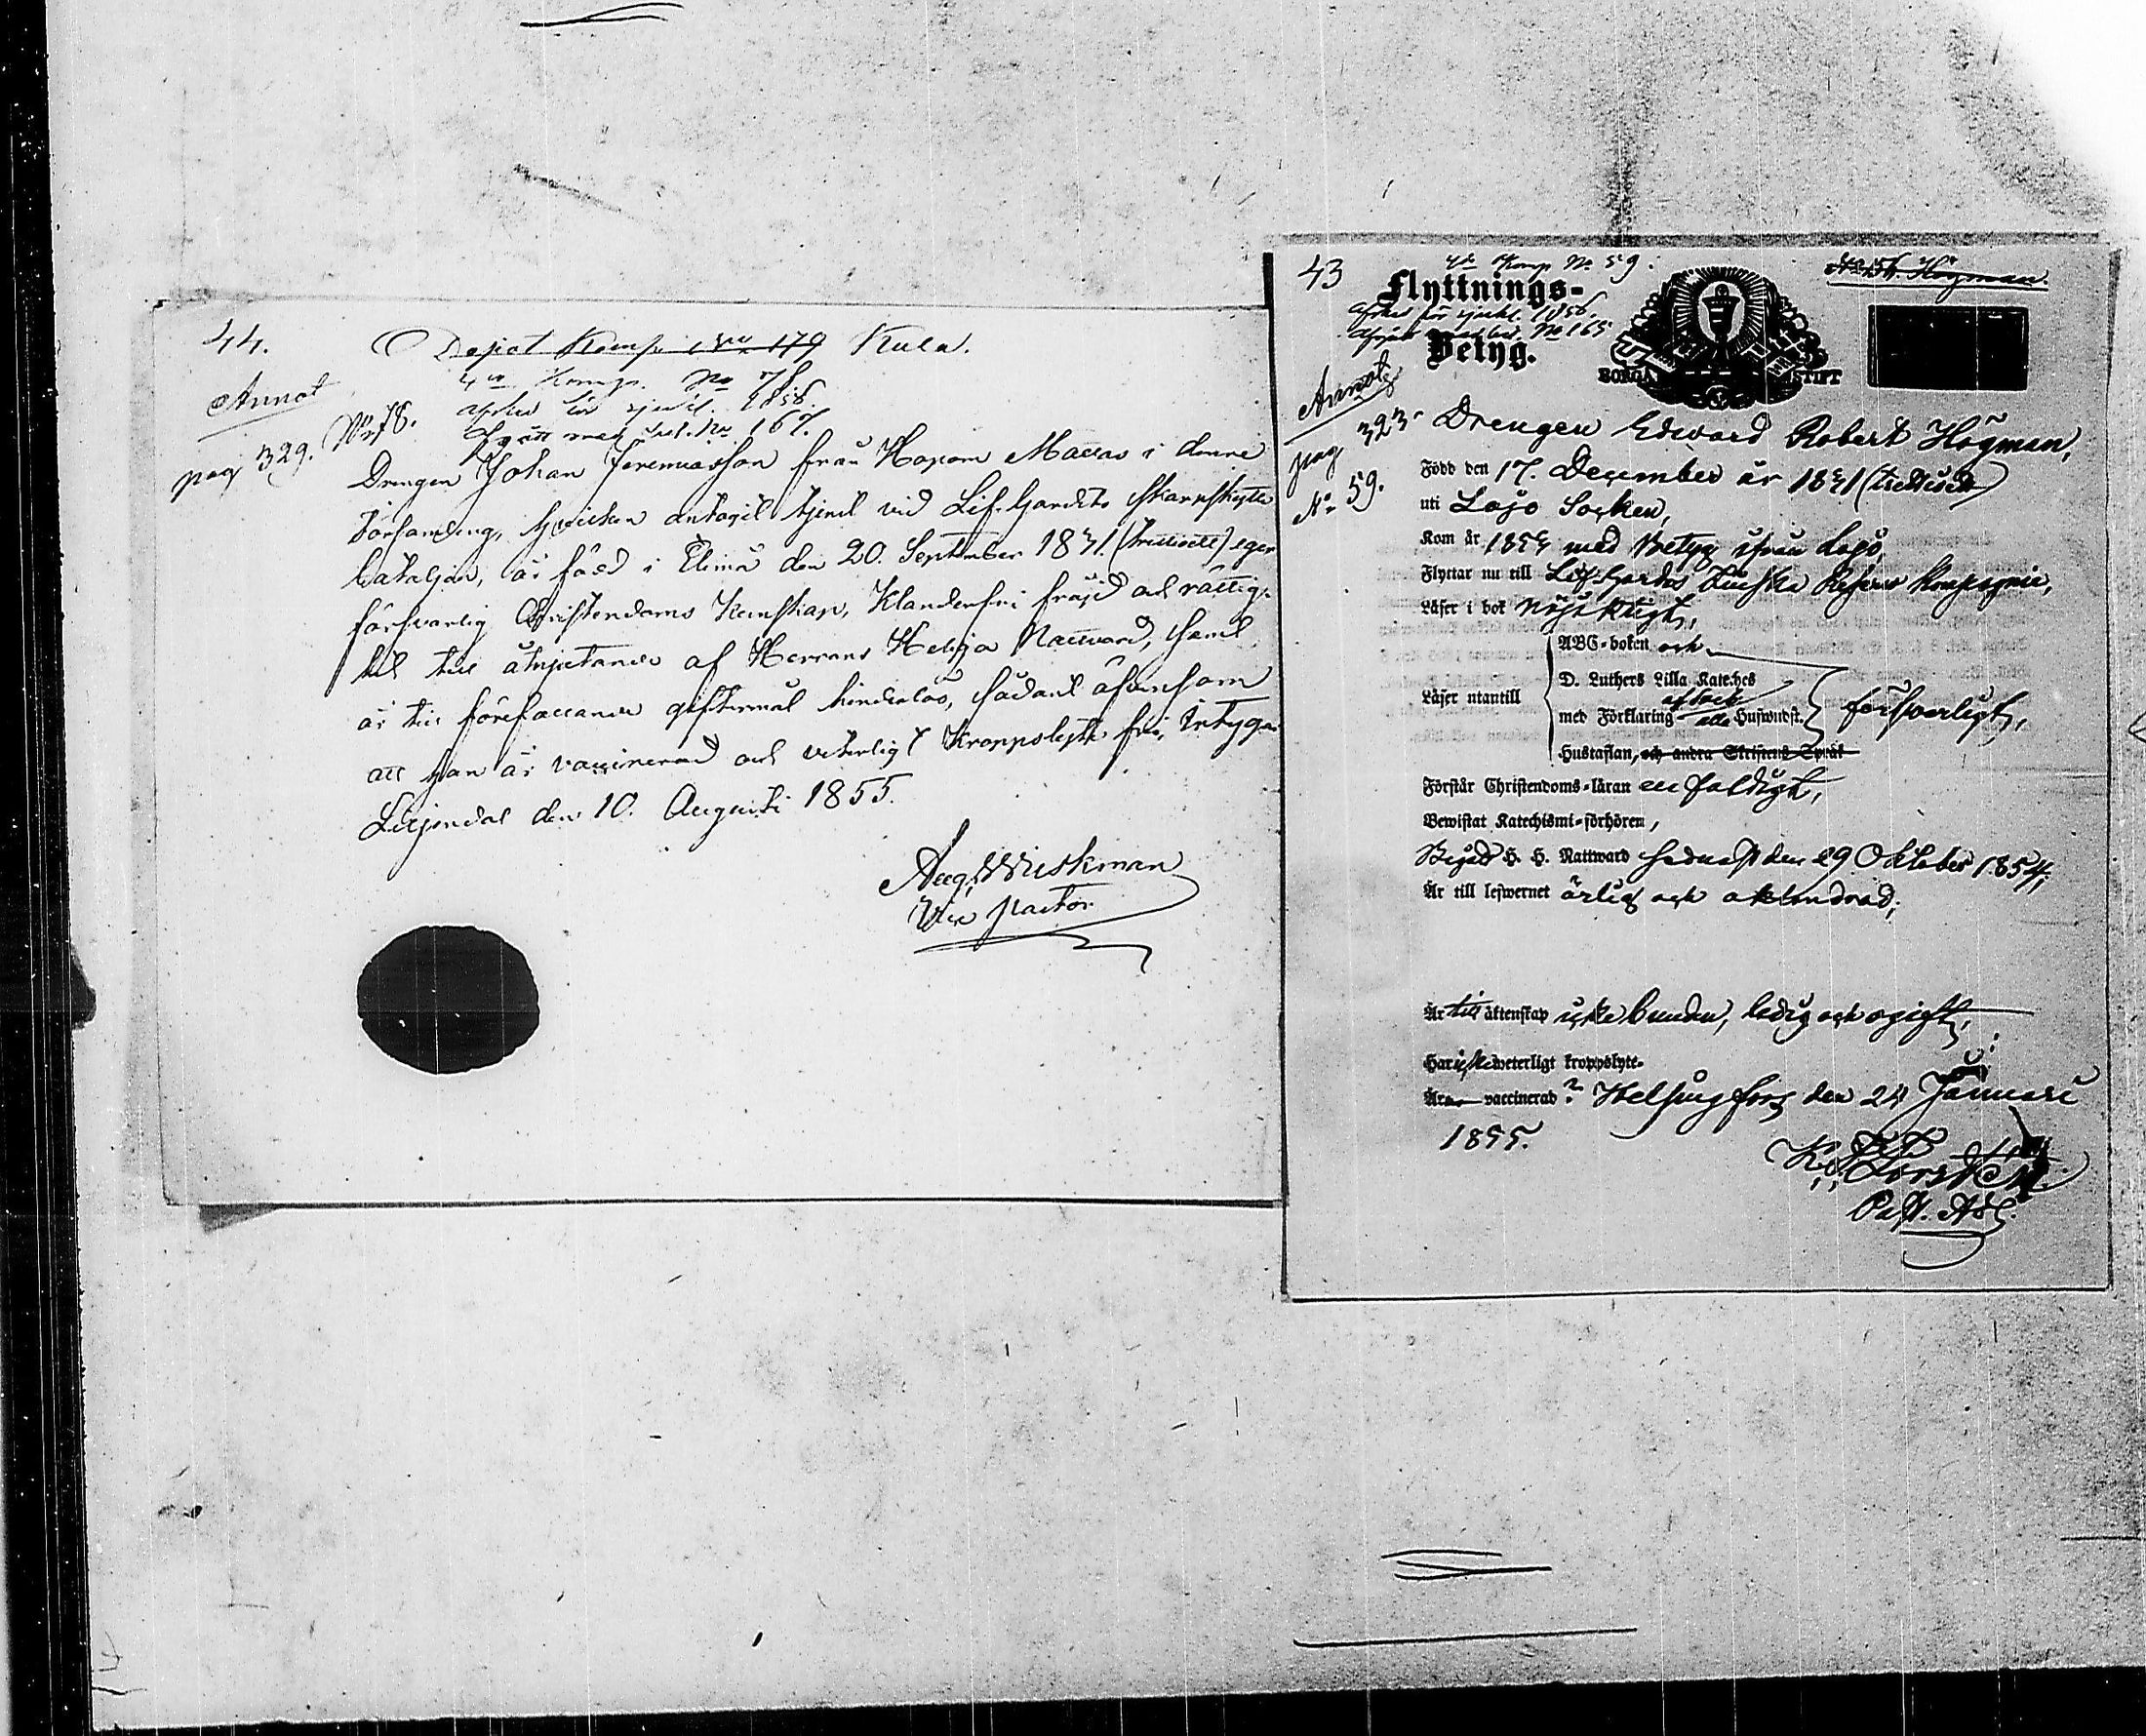 44.
Depot Komp. No 179 Kula.
Annot
4de Komp. No 78
afsked för sjukl. 1856.
No 78.
pag 329.
Afgått med bet. No 167.
Drengen Johan Jeremiasson från Haapom Mattas i denne
församling, hvilken antagit tjenst vid Lif-Gardets Skarpskytte
bataljon, är född i Elimä den 20. September 1831. (trettioett) eger
försvarlig Christendoms Kunskap, Klanderfri fräjd och rättig-
het till åtnjutande af Herrans Heliga Nattvard, samt
är till förefallande giftermål hinderlös, sådant äfvensom
att han är vaccinerad och veterligt Kroppslyte fri, Intygar
Liljendal den 10. Augusti 1855.
Aug. Wiskman
Vice pastor
43
4de Komp No 59.
Högman.
Flyttnings-
afsked för sjukl. 1856.
Afgått med bet. No 165
Betyg.
BORGÅ STIFT
Annot
pag 323.
No 59.
Drengen Edward Robert Högman,
Född den 17. December år 1831 (trettioett)
uti Lojo Socken,
Kom år 1854 med Betyg ifrån Lojo,
Flyttar nu till Lif-Gardes Finska Reserv Kompagnie,
Läser i bok nöjaktigt,
ABC-boken och
D. Luthers Lilla Kateches
Läser utantill
med Förklaring alle Huswudst.
försvarligt,
Hustaflan, och andra Skriftens Språk
Förstår Christendoms-läran enfaldigt,
Bewistat Katechismi-förhören,
Begått H. H. Nattward sednast den 29 Oktober 1854;
Är till lefwernet ärlig och oklandrad;
Är till äktenskap icke bunden, ledig och ogift,
Har icke weterligt kroppslyte.
Är vaccinerad? Helsingfors den 24 Januari
1855.
Past. Adj.